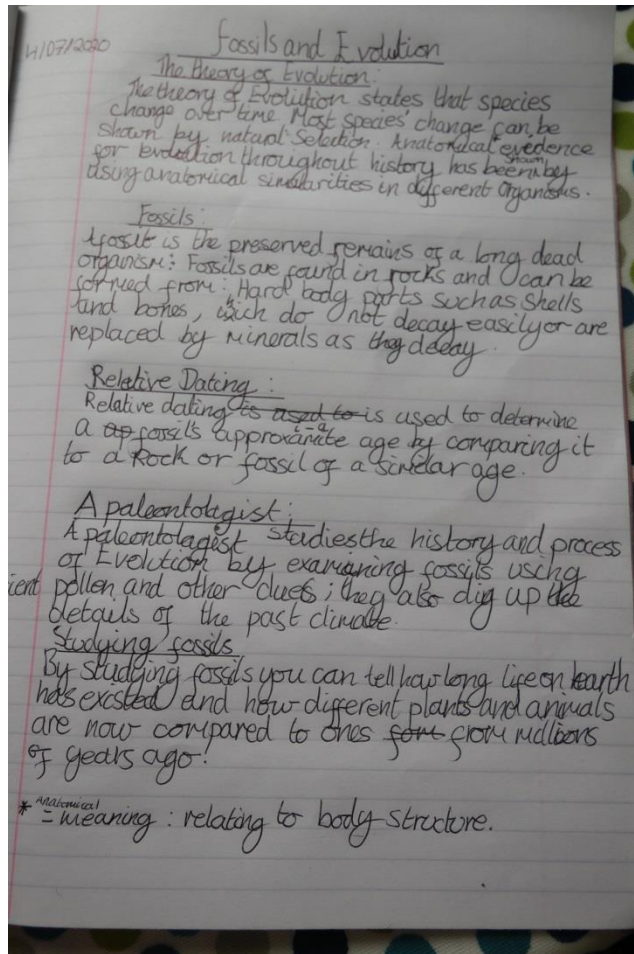 4/07/2020
Fossils and Evolution
The theory of Evolution:
The theory of Evolution states that species
change over time Most species' change can be
shown by natural Selection. Anatomical evedence
for evolution throughout history has been shown by
Using anatomical similarities in different Organisms.
Fossils:
A fossil is the preserved remains of a long dead
organism: Fossils are found in rocks and can be
formed from: Hard body parts such as shells
and bones, which do not decay easily or are
replaced by minerals as they decay.
Relative Dating:
Relative dating is used to is used to determine
a ap fossil's approximate age by comparing it
to a Rock or fossil of a similar age.
A paleontologist:
A paleontologist studies the history and process
of Evolution by examining fossils using
ient pollen and other clues; they also dig up the
details of the past climate.
Studying fossils
By studying fossils you can tell how long life on earth
has existed and how different plants and animals
are now compared to ones form from millions
of years ago!
* Anatomical
= meaning: relating to body structure.